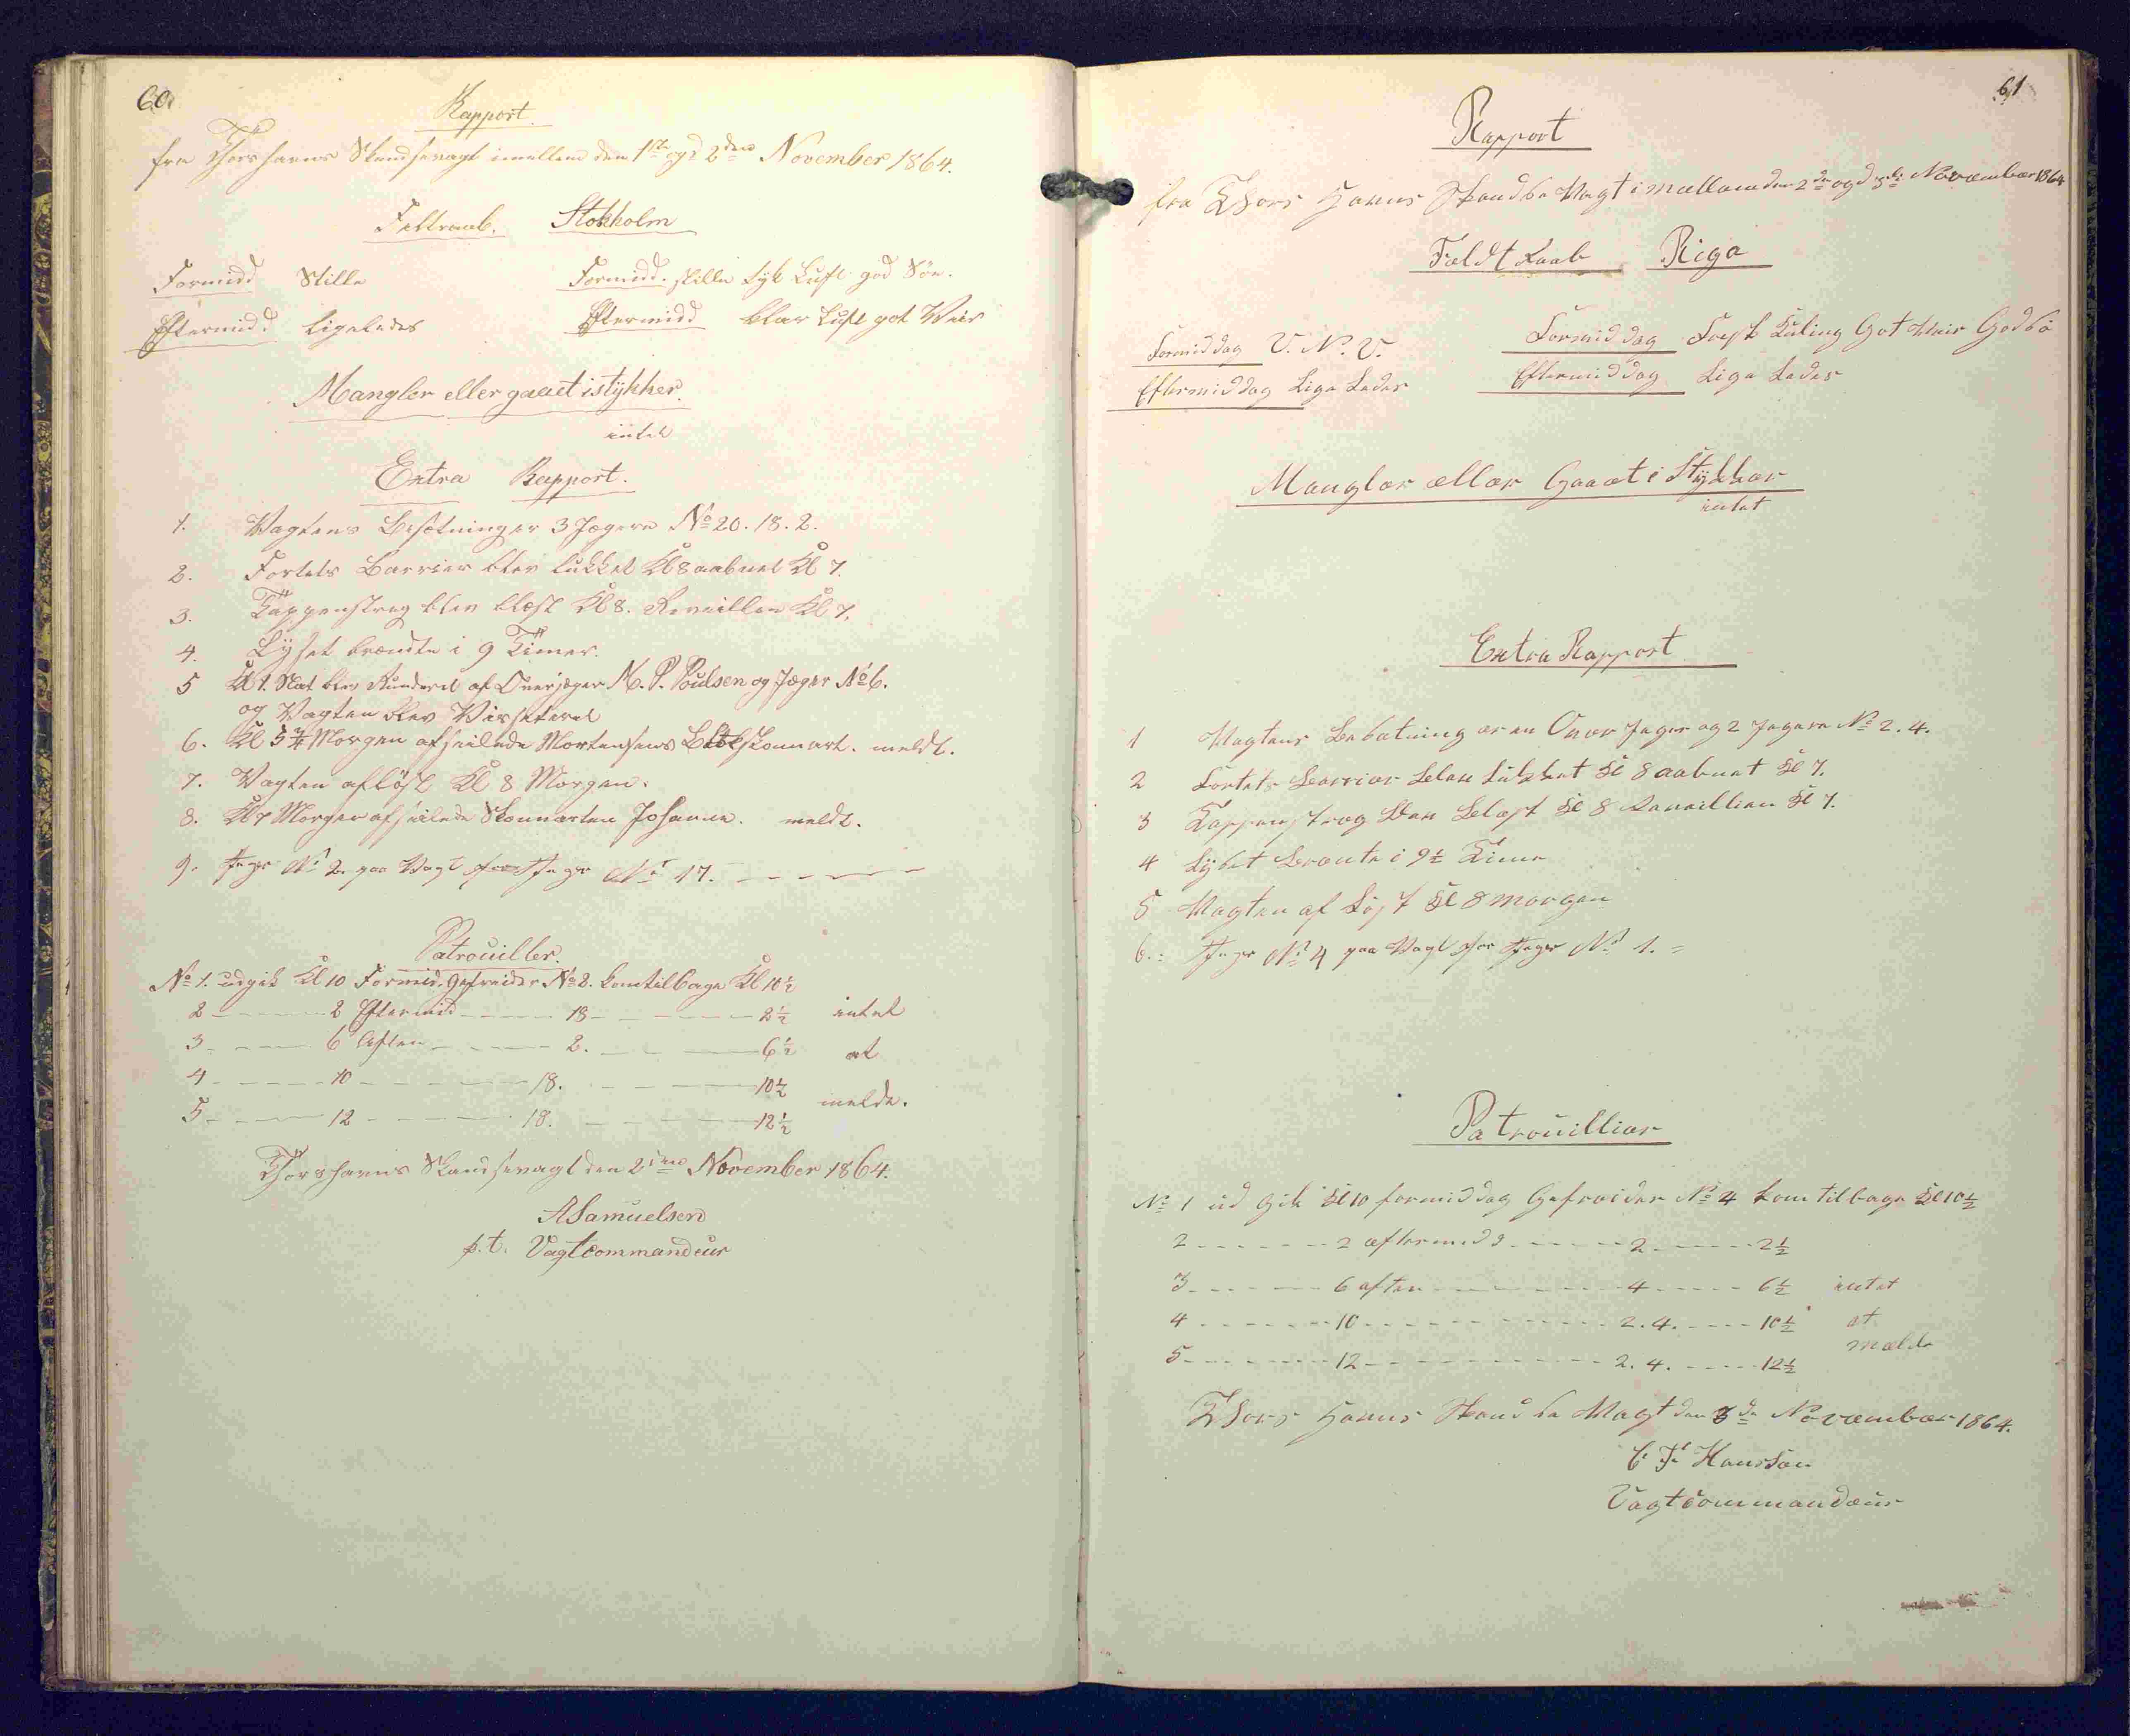 60.
Rapport.
fra Thorshavns Skandsevagt imellem den 1ste og 2den November 1864.
Feltraab. Stokholm
Formidd Stille Formidd. stille tyk Luft god Söe.
Eftermidd ligeledes Eftermidd klar Luft got Veir
Mangler eller gaaet istykker.
intet
Extra Rapport.
1. Vagtens Besetninger 3 Jegere No 20. 18. 2.
2. Fortets Barrier blev lukket Kl 8 aabnet Kl 7.
3. Tappenstreg blev blæst Kl 8. Reveillen Kl 7.
4. Lyset brændte i 9 Timer.
5 Kl 1. Nat blev Runderet af Overjæger M. P. Poulsen og Jæger No 6.
og Vagten blev Visiteret
6. Kl 5 3/4 Morgen afseilede Mortensens Skonnart. meldt.
7. Vagten aflöst Kl 8 Morgen.
8. Kl 7 Morgen afseilede Skonnarten Johanne. meldt.
9. Jeger No 2. paa Vagt for Jeger No 17. - - - - -
Patrouiller.
No 1. udgik Kl 10 Formid. Gefreider No 2. kom tilbage Kl 10 1/2
2 - - - - 2 Eftermid - - - - 18 - - - - 2 1/2 intet
3 - - - - 6 Aften - - - - 2. - - - - 6 1/2 at
4 - - - - 10 - - - - 18. - - - - 10 1/2
melde.
5 - - - - 12 - - - - 18. - - - - 12 1/2
Thorshavns Skandsevagt den 2den November 1864.
A Samuelsen
p.t. Vagtcommandeur
61
Rapport
fra Thors Havns Skandse Vagt imællem den 2den og d 3de Novæmber 1864
Feldt Raab Riga
Formiddag V. N. V. Formiddag Frisk Kuling Got Veir God Sö
Eftermiddag Lige Ledes Eftermiddag Lige Ledes
Manglær ællær Gaaæt i Stykkær
intet
Extra Rapport
1 Vagtens Besætning ær en Over Jeger og 2 Jegere No 2. 4.
2 Fortets Barrier blev lukket Kl 8 aabnet Kl 7.
3 Tappenstreg blev blæst Kl 8 Revæillien Kl 7.
4 Lyset brænte i 9 1/2 Time
5 Vagten af Löst Kl 8 morgen
6.. Jeger No 4 paa Vagt for Jeger No 1. =
Patrouilliær
No 1 ud Gik Kl 10 formiddag Gefreider No 4 kom tilbage Kl 10 1/2
2 - - - - 2 æftermid - - - - 2 - - - - 2 1/2
3 - - - - 6 aften - - - - 4 - - - - 6 1/2 intet
4 - - - - 10 - - - - 2. 4. - - - - 10 1/2 at
mælde
5 - - - - 12 - - - - 2. 4. - - - - 12 1/2
Thors Havns Skandse Vagt den 3de Novæmbær 1864.
Hansen
Vagtcommandæur